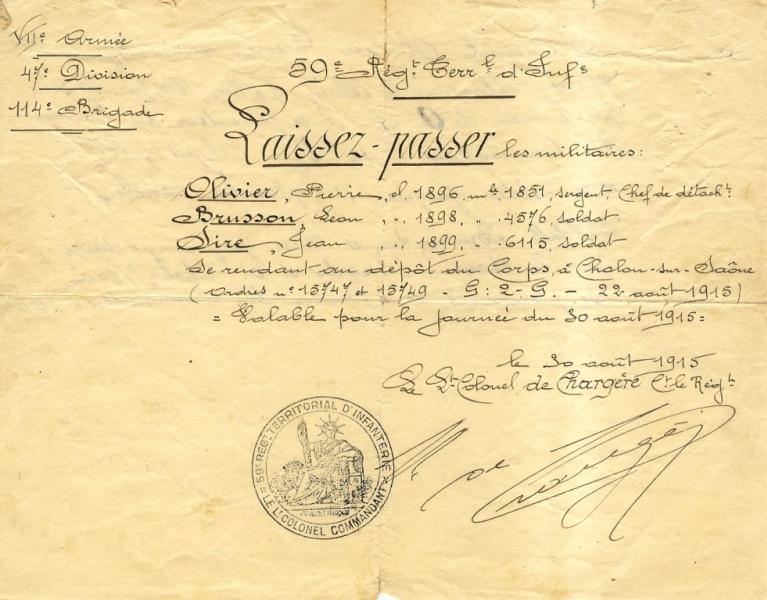 VIIe Armée
47e Division
114e Brigade
59e Régt Terrl d'Infie
Laissez-passer les militaires:
Olivier, Pierre, cl 1896, mle 1851, sergent, Chef de détacht
Brusson, Léon, „ 1898, „ 4576, soldat
Sire, Jean „ 1899, „ 6115, soldat
Se rendant au dépôt du Corps, à Chalon-sur-Saône
(Ordres nos 15747 et 15749 - G: 2-G. - 22 août 1915)
= Valable pour la journée du 30 août 1915 =
le 30 août 1915
Le Lt Colonel de Chargère Ct le Régt
59e REGT TERRITORIAL D'INFANTERIE
LE LT COLONEL COMMANDANT